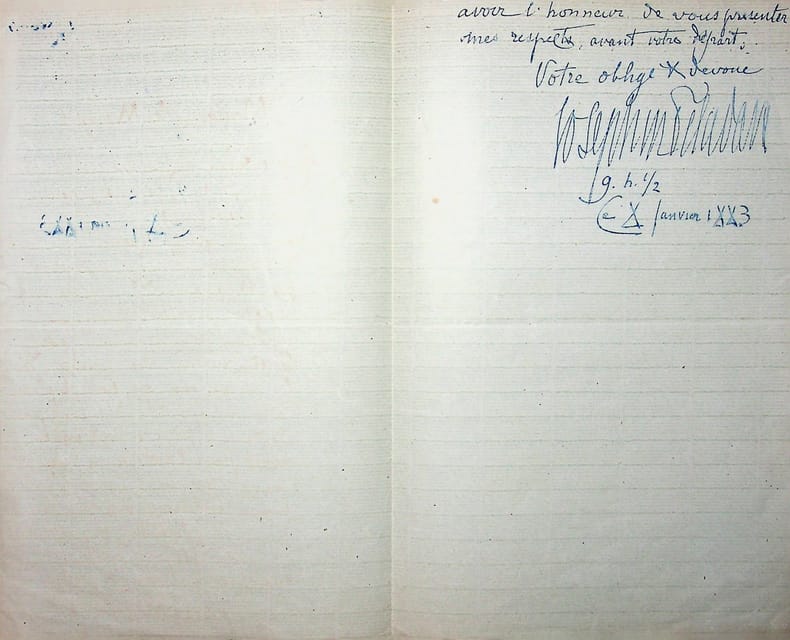 avoir l'honneur, de vous presenter
mes respects, avant votre départ.
Votre obligé X devoué
Josephin Péladan
9. h. 1/2
Ce X Janvier 1XX3